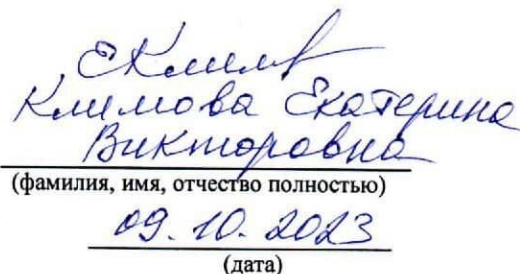 ЕКлим
Климова Екатерина
Викторовна
(фамилия, имя, отчество полностью)
09.10.2023
(дата)